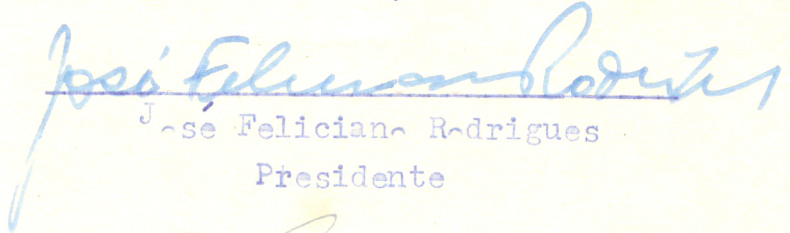 José Feliciano Rodrigues
José Feliciano Rodrigues
Presidente